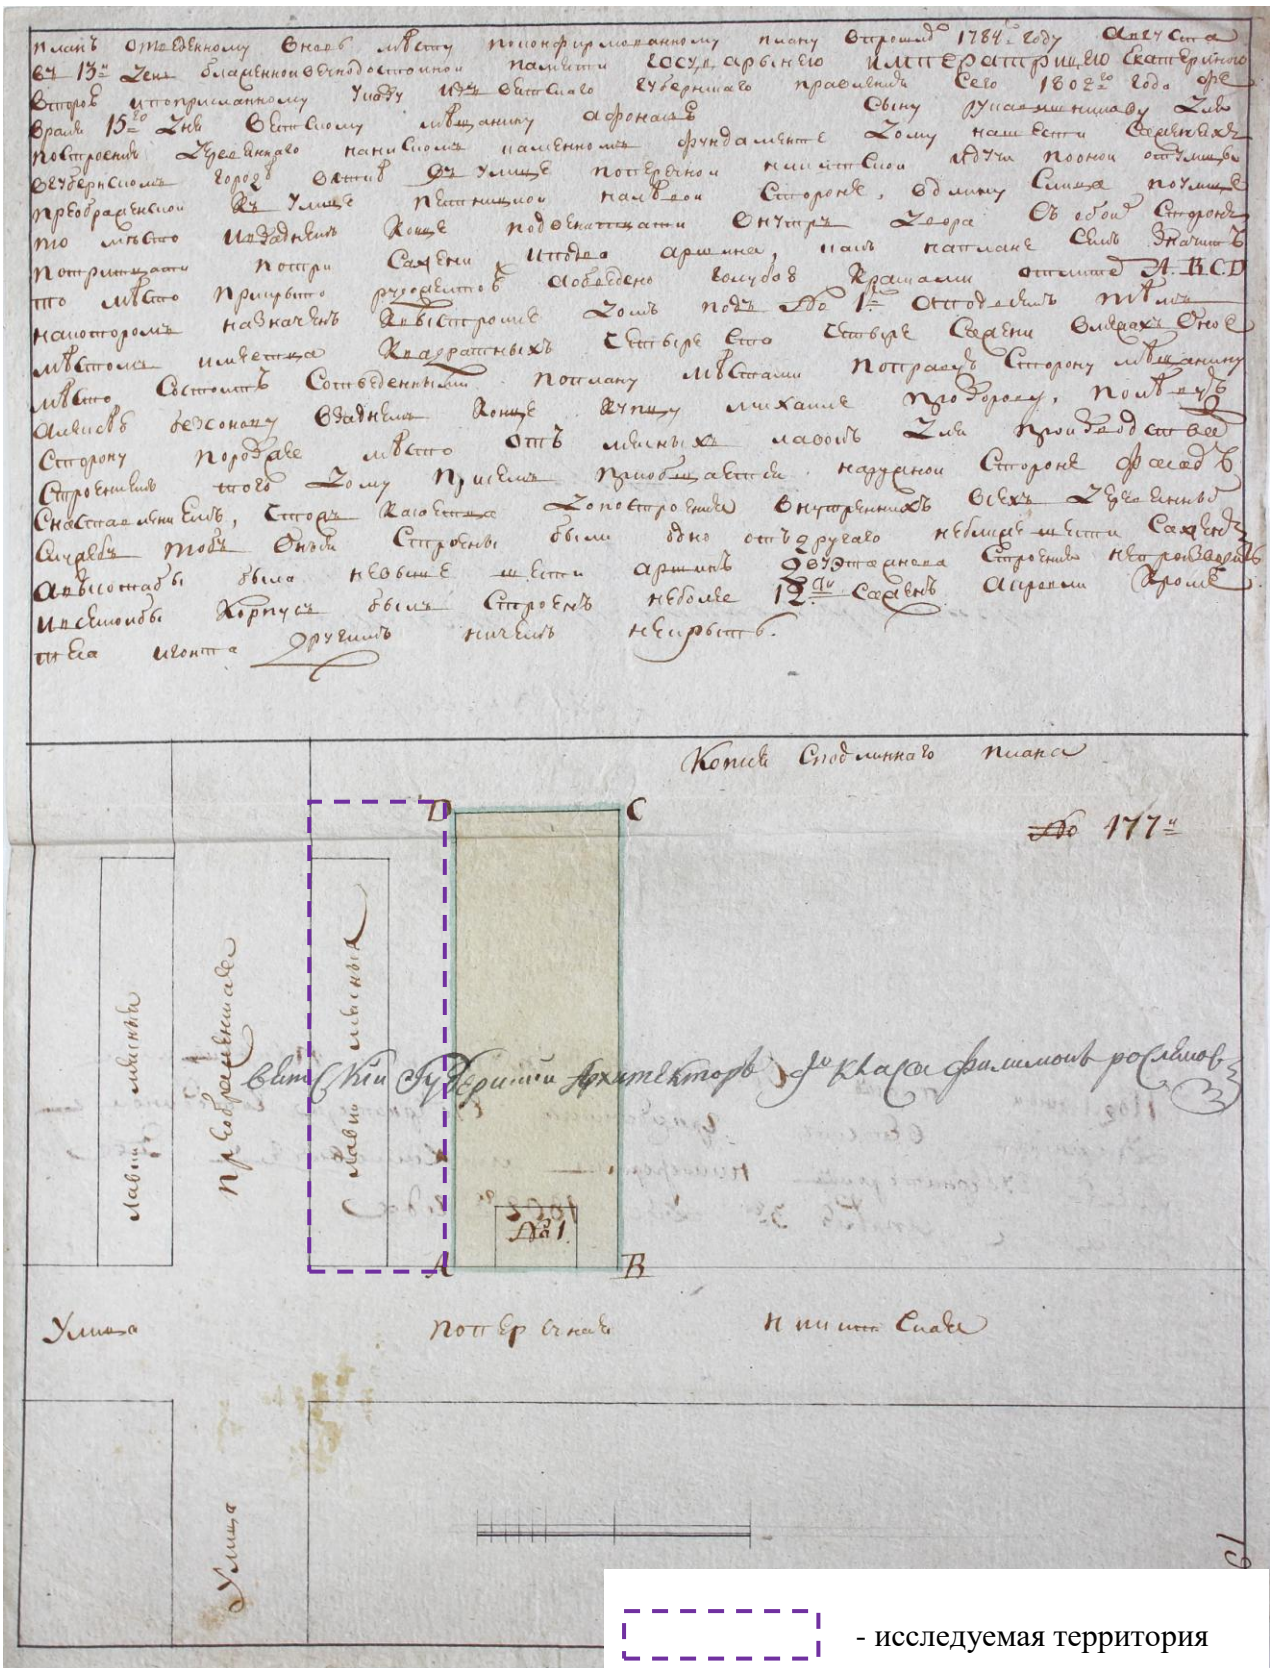 планъ отведенному вновь мѣсту поконфирмованному плану впрошло 1784го году августа
въ 13й день блаженной вечнодостойной памяти государынею императрицею Екатериною
второю ипоприсланному указу изъ вятскаго губернскаго правления сего 1802го года фе
враля 15го дня вятскому мѣщанину афонас сыну для
построения деревяннаго нанискомъ каменномъ фундаменте дому на шести саженяхъ
вгубернскомъ городѣ вятке въ улице поперечной никитской идучи пооной отулицы
преображенской къ улице пятницкой налевой стороне, вдлину слица поулице
то мѣсто изаднемъ конце подвенатцати внутрь двора съ обоих сторонъ
потритцати потри сажени идва аршина, какъ наплане семъ значитъ
то мѣсто прикрыто обведено голубою краскою отлитеръ A. B. C. D
накоторомъ назначенъ квыстройке домъ подъ № 1м отведеннымъ тѣмъ
мѣстомъ имеетца квадратныхъ четыре сто четыре сажени вмежахъ оное
мѣсто состоитъ сотведенными поплану мѣстами поправую сторону мѣщанину
алексѣю безсонову взаднемъ конце купцу михаиле прозорову, полѣвую
сторону порозжее мѣсто отъ мясныхъ лавокъ для производства
строениемъ того дому присемъ приобщается наружной стороне фасадъ
снаставлениемъ, чтожъ касается допостроения внутреннихъ всехъ деревянныхъ
служебъ тобъ оныя строены были одно отъ другаго неближе шести саженъ
авысотабы была невыше шести аршинъ двухэтажнаго строения непроизводить
ивсякойбы корпусъ былъ строенъ неболее 12ти саженъ акровли кроме
теса игонта другимъ ничемъ некрыть.
Копия сподлиннаго плана
№ 177й
D C
лавки мясныя
преображенская
лавки мясныя
вятскій губернскій архитекторъ класа филимонъ росляков
№ 1.
A B
Улица поперечная никитская
Улица
- исследуемая территория